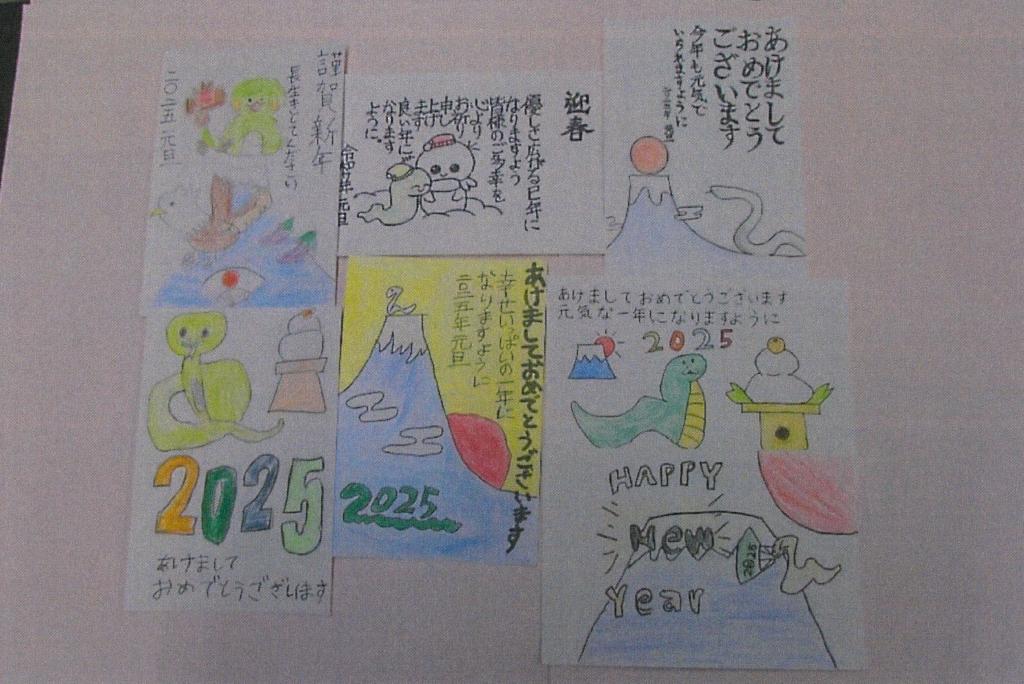 謹賀新年
長生きしてください
二〇二五 元旦
迎春
優しさ広がる巳年に
なりますよう
皆様のご多幸を
心より
お祈り
申し
上げ
ます
良い年に
なります
ように。
令和7年 元旦
あけまして
おめでとう
ございます
今年も元気で
いられますように
2025
あけまして
おめでとうございます
あけましておめでとうございます
幸せいっぱいの一年に
なりますように
二〇二五年元旦
2025
あけましておめでとうございます
元気な一年になりますように
2025
HAPPY
New
Year
2025